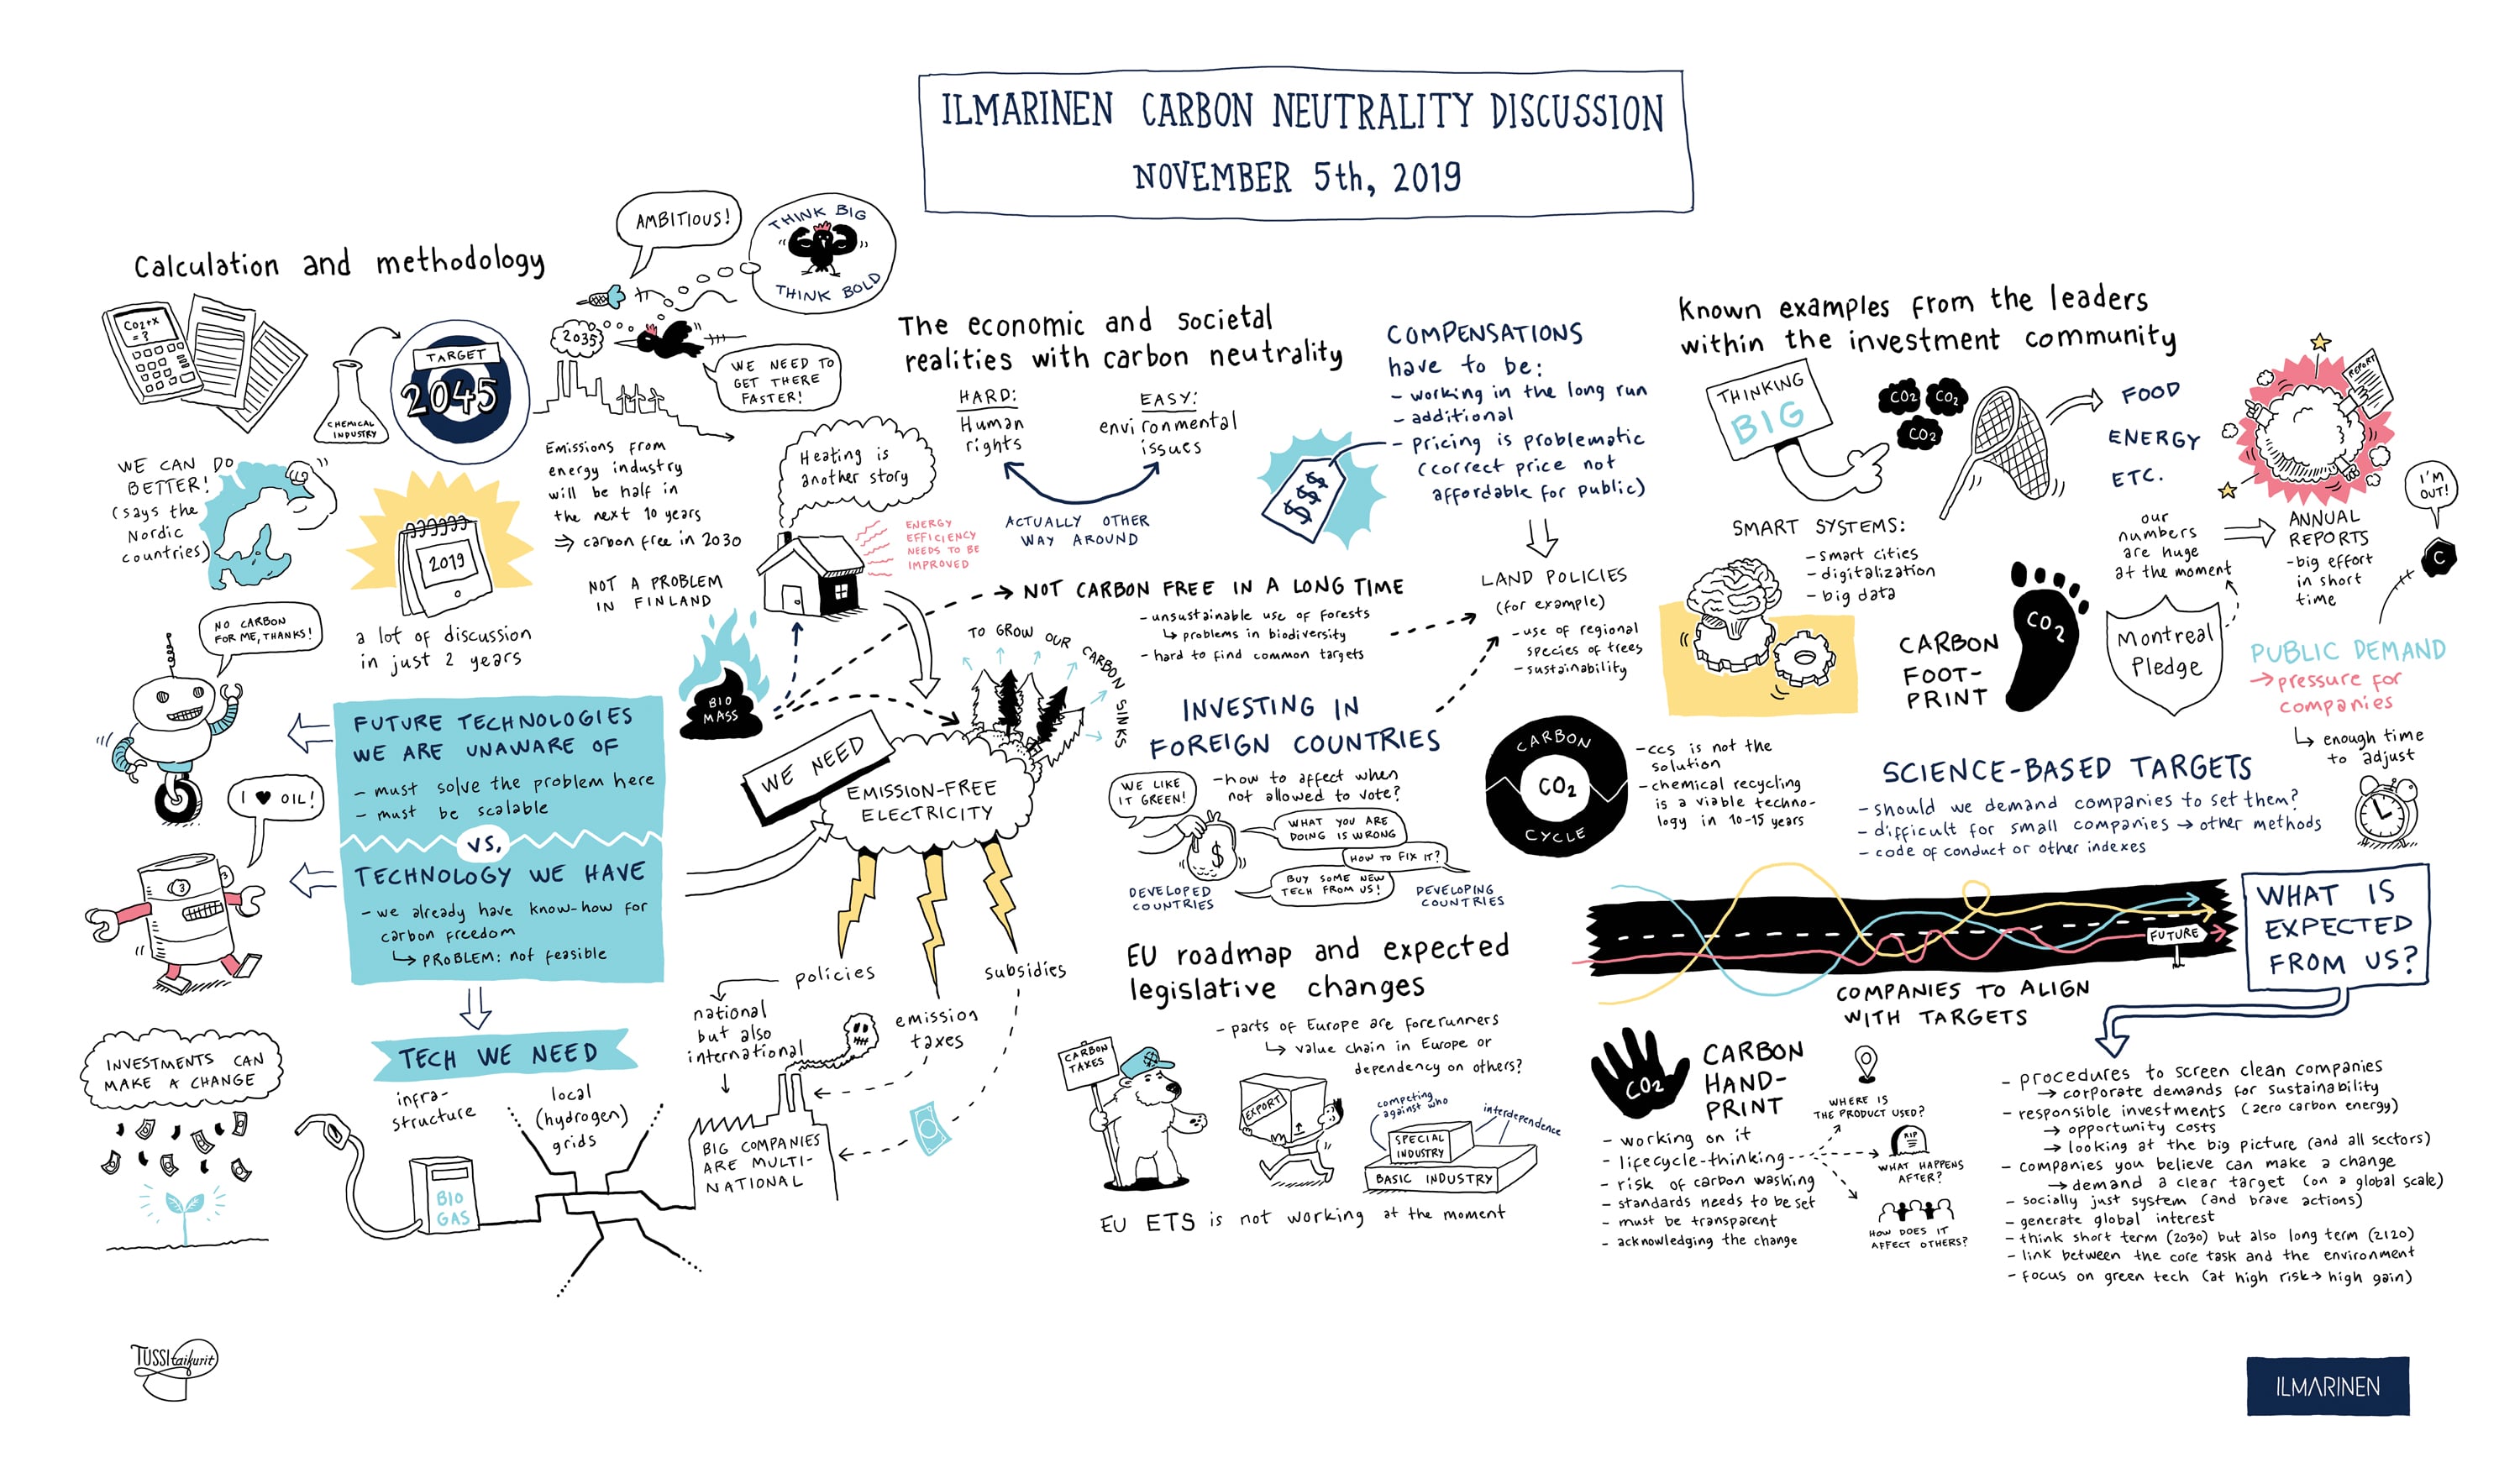 ILMARINEN CARBON NEUTRALITY DISCUSSION
NOVEMBER 5th, 2019
Calculation and methodology
CO2+X
= ?
CHEMICAL
INDUSTRY
TARGET
2045
AMBITIOUS!
THINK BIG
THINK BOLD
2035
WE NEED TO
GET THERE
FASTER!
WE CAN DO
BETTER!
(says the
Nordic
countries)
2019
a lot of discussion
in just 2 years
Emissions from
energy industry
will be half in
the next 10 years
⇒ carbon free in 2030
NOT A PROBLEM
IN FINLAND
Heating is
another story
ENERGY
EFFICIENCY
NEEDS TO BE
IMPROVED
NO CARBON
FOR ME, THANKS!
FUTURE TECHNOLOGIES
WE ARE UNAWARE OF
- must solve the problem here
- must be scalable
VS.
TECHNOLOGY WE HAVE
- we already have know-how for
carbon freedom
↳ PROBLEM: not feasible
I ♥ OIL!
INVESTMENTS CAN
MAKE A CHANGE
TECH WE NEED
infra-
structure
local
(hydrogen)
grids
BIO
GAS
BIO
MASS
TO GROW OUR CARBON SINKS
WE NEED
EMISSION-FREE
ELECTRICITY
policies
national
but also
international
emission
taxes
subsidies
BIG COMPANIES
ARE MULTI-
NATIONAL
The economic and societal
realities with carbon neutrality
HARD:
Human
rights
EASY:
environmental
issues
ACTUALLY OTHER
WAY AROUND
COMPENSATIONS
have to be:
- working in the long run
- additional
- pricing is problematic
(correct price not
affordable for public)
$$$
NOT CARBON FREE IN A LONG TIME
- unsustainable use of forests
↳ problems in biodiversity
- hard to find common targets
LAND POLICIES
(for example)
- use of regional
species of trees
- sustainability
INVESTING IN
FOREIGN COUNTRIES
WE LIKE
IT GREEN!
- how to affect when
not allowed to vote?
$
WHAT YOU ARE
DOING IS WRONG
HOW TO FIX IT?
BUY SOME NEW
TECH FROM US!
DEVELOPED
COUNTRIES
DEVELOPING
COUNTRIES
CARBON
CO2
CYCLE
- ccs is not the
solution
- chemical recycling
is a viable techno-
logy in 10-15 years
EU roadmap and expected
legislative changes
- parts of Europe are forerunners
↳ value chain in Europe or
dependency on others?
CARBON
TAXES
EXPORT
competing
against who
interdependence
SPECIAL
INDUSTRY
BASIC INDUSTRY
EU ETS is not working at the moment
Known examples from the leaders
within the investment community
THINKING
BIG
CO2
CO2
CO2
FOOD
ENERGY
ETC.
REPORT
SMART SYSTEMS:
- smart cities
- digitalization
- big data
our
numbers
are huge
at the moment
ANNUAL
REPORTS
- big effort
in short
time
I'M
OUT!
C
CARBON
FOOT-
PRINT
CO2
Montreal
Pledge
PUBLIC DEMAND
→ pressure for
companies
↳ enough time
to adjust
SCIENCE-BASED TARGETS
- should we demand companies to set them?
- difficult for small companies → other methods
- code of conduct or other indexes
FUTURE
COMPANIES TO ALIGN
WITH TARGETS
WHAT IS
EXPECTED
FROM US?
CO2
CARBON
HAND-
PRINT
- working on it
- lifecycle-thinking
- risk of carbon washing
- standards needs to be set
- must be transparent
- acknowledging the change
WHERE IS
THE PRODUCT USED?
RIP
WHAT HAPPENS
AFTER?
HOW DOES IT
AFFECT OTHERS?
- procedures to screen clean companies
→ corporate demands for sustainability
- responsible investments (zero carbon energy)
→ opportunity costs
→ looking at the big picture (and all sectors)
- companies you believe can make a change
→ demand a clear target (on a global scale)
- socially just system (and brave actions)
- generate global interest
- think short term (2030) but also long term (2120)
- link between the core task and the environment
- focus on green tech (at high risk → high gain)
TUSSItaikurit
ILMARINEN